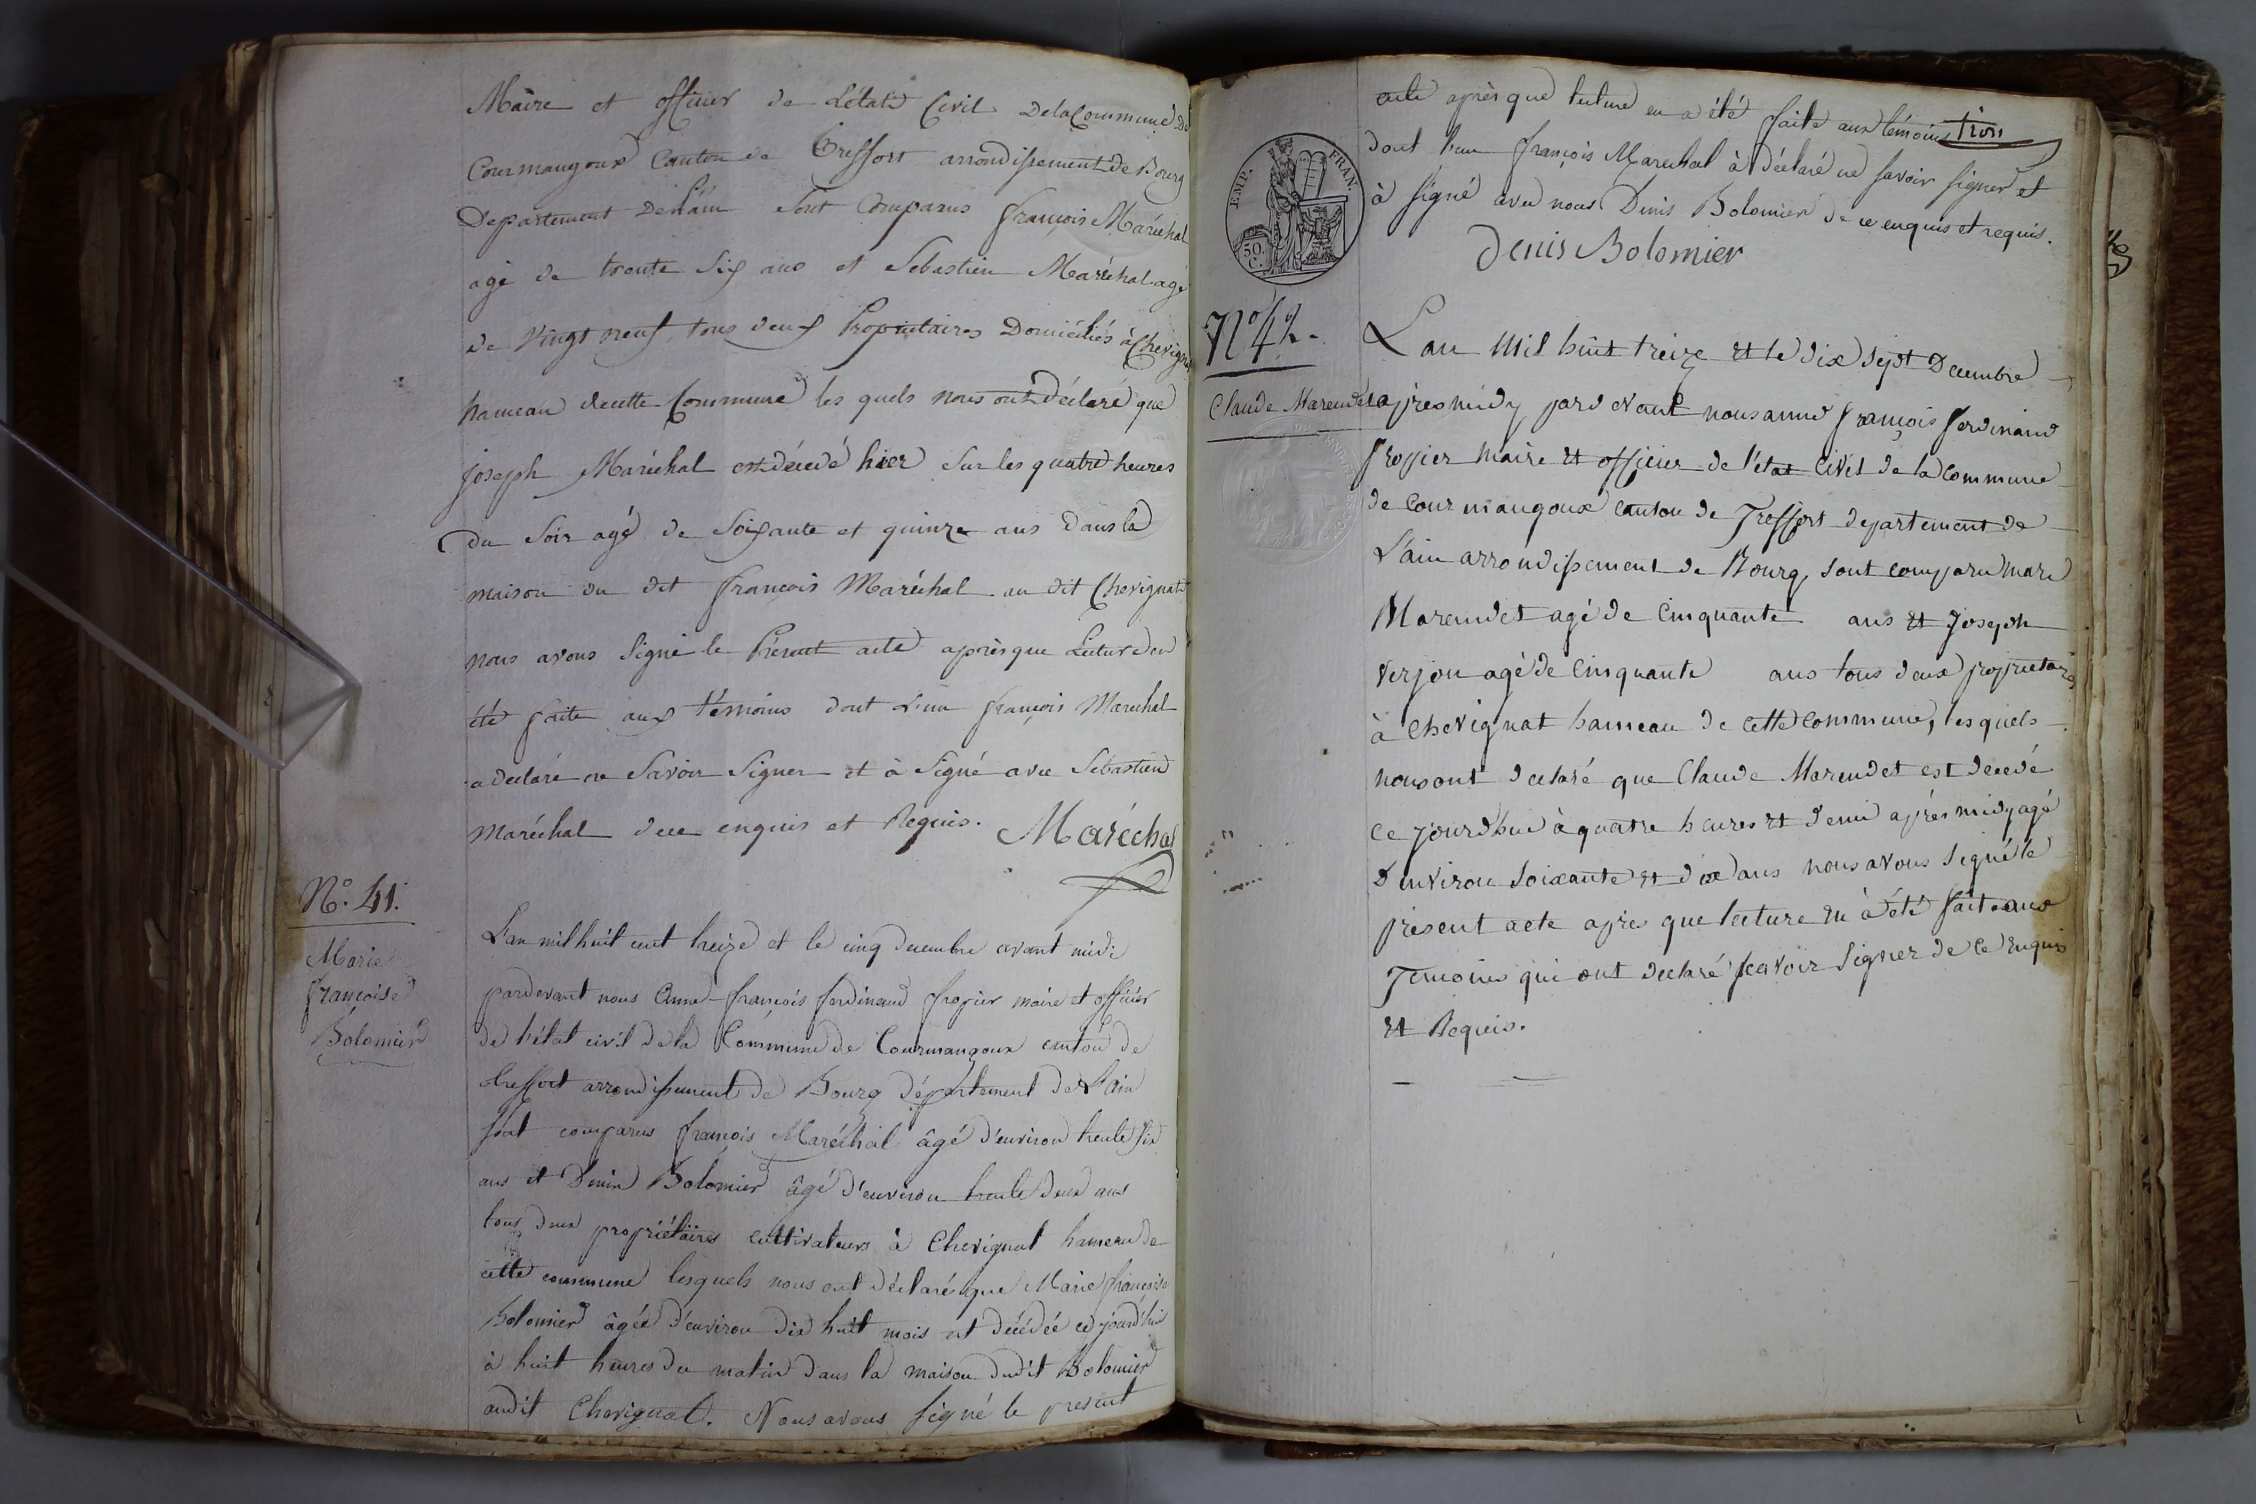 Maire et officier de L'état Civil De la Commune De
Courmangoux Canton de Treffort arrondissement de Bourg
Departement De l'ain sont Comparus françois Maréchal
agé de trente Six ans et Sebastien Maréchal agé
de Vingt neuf, tous deux Propriétaires Domiciliés à Chevignat
hameau de cette Commune les quels nous ont déclaré que
joseph Maréchal est décédé hier sur les quatre heures
Du Soir agé de Soixante et quinze ans Dans la
maison du dit françois Maréchal au dit Chevignat
nous avons Signé le Présent acte après que Lecture en
été faite aux témoins dont L'un françois Marechal
a declaré ne Savoir Signer et à Signé avec Sebastien
Maréchal de ce enquis et Requis.
Maréchal
N.° 41.
Marie
françoise
Bolomier
L'an mil huit cent treize et le cinq decembre avant midi
pardevant nous Anne-françois ferdinand fropier maire et officier
de l'état civil de la Commune de Courmangoux canton de
treffort arrondissement de Bourg département de L'ain
sont comparus françois Maréchal âgé d'environ trente six
ans et Denis Bolomier âgé d'environ trente deux ans
tous deux propriétaires cultivateurs à Chevignat hameau de
cette commune lesquels nous ont déclaré que Marie françoise
Bolomier âgée d'environ dix huit mois est décédée cejourd'hui
à huit heures du matin dans la maison dudit Bolomier
audit Chevignat. Nous avons signé le present
acte après que lecture en a été faite aux témoins
dont l'un françois Marechal à déclaré ne savoir signer et
à signé avec nous Denis Bolomier de ce enquis et requis.
Denis Bolomier
EMP. FRAN.
50 C.
N° 42.
Claude Marendet
L'an Mil huit treize et le dix sept Decembre
apres midy pard evant nous anne françois ferdinand
fropier Maire et officier de l'etat Civil de la commune
de Cour mangoux canton de Treffort departement de
L'ain arrondissement de Bourg, sont comparu Marc
Marendet agé de Cinquante ans et Joseph
Verjon agé de Cinquante ans tous deux proprietaires
à Chevignat hameau de Cette Commune, les quels
nous ont declaré que Claude Marendet est decedé
Ce jourdhui à quatre heures et demi après midy agé
D'environ soixante et dix ans nous avons signé le
present acte apre que lecture en à été fait aux
Temoins qui ont declaré scavoir signer de Ce Enquis
et Requis.